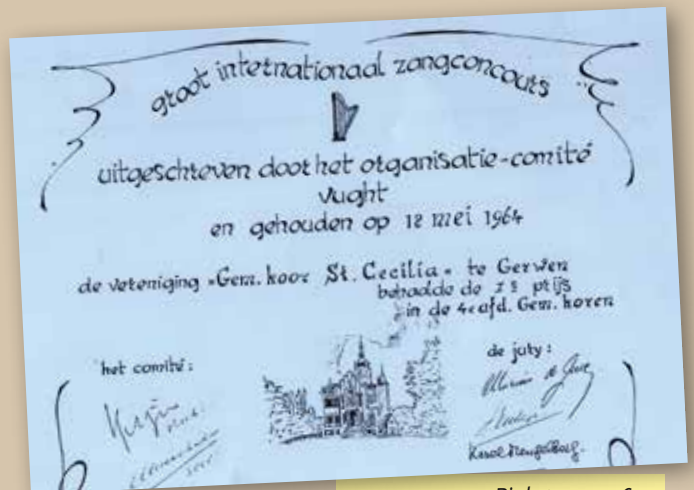 groot internationaal zangconcours
uitgeschreven door het organisatie-comité
Vught
en gehouden op 18 mei 1964
de vereniging "Gem. koor St. Cecilia" te Gerwen
behaalde de 1e prijs
in de 4e afd. Gem. koren
het comité:
de jury: